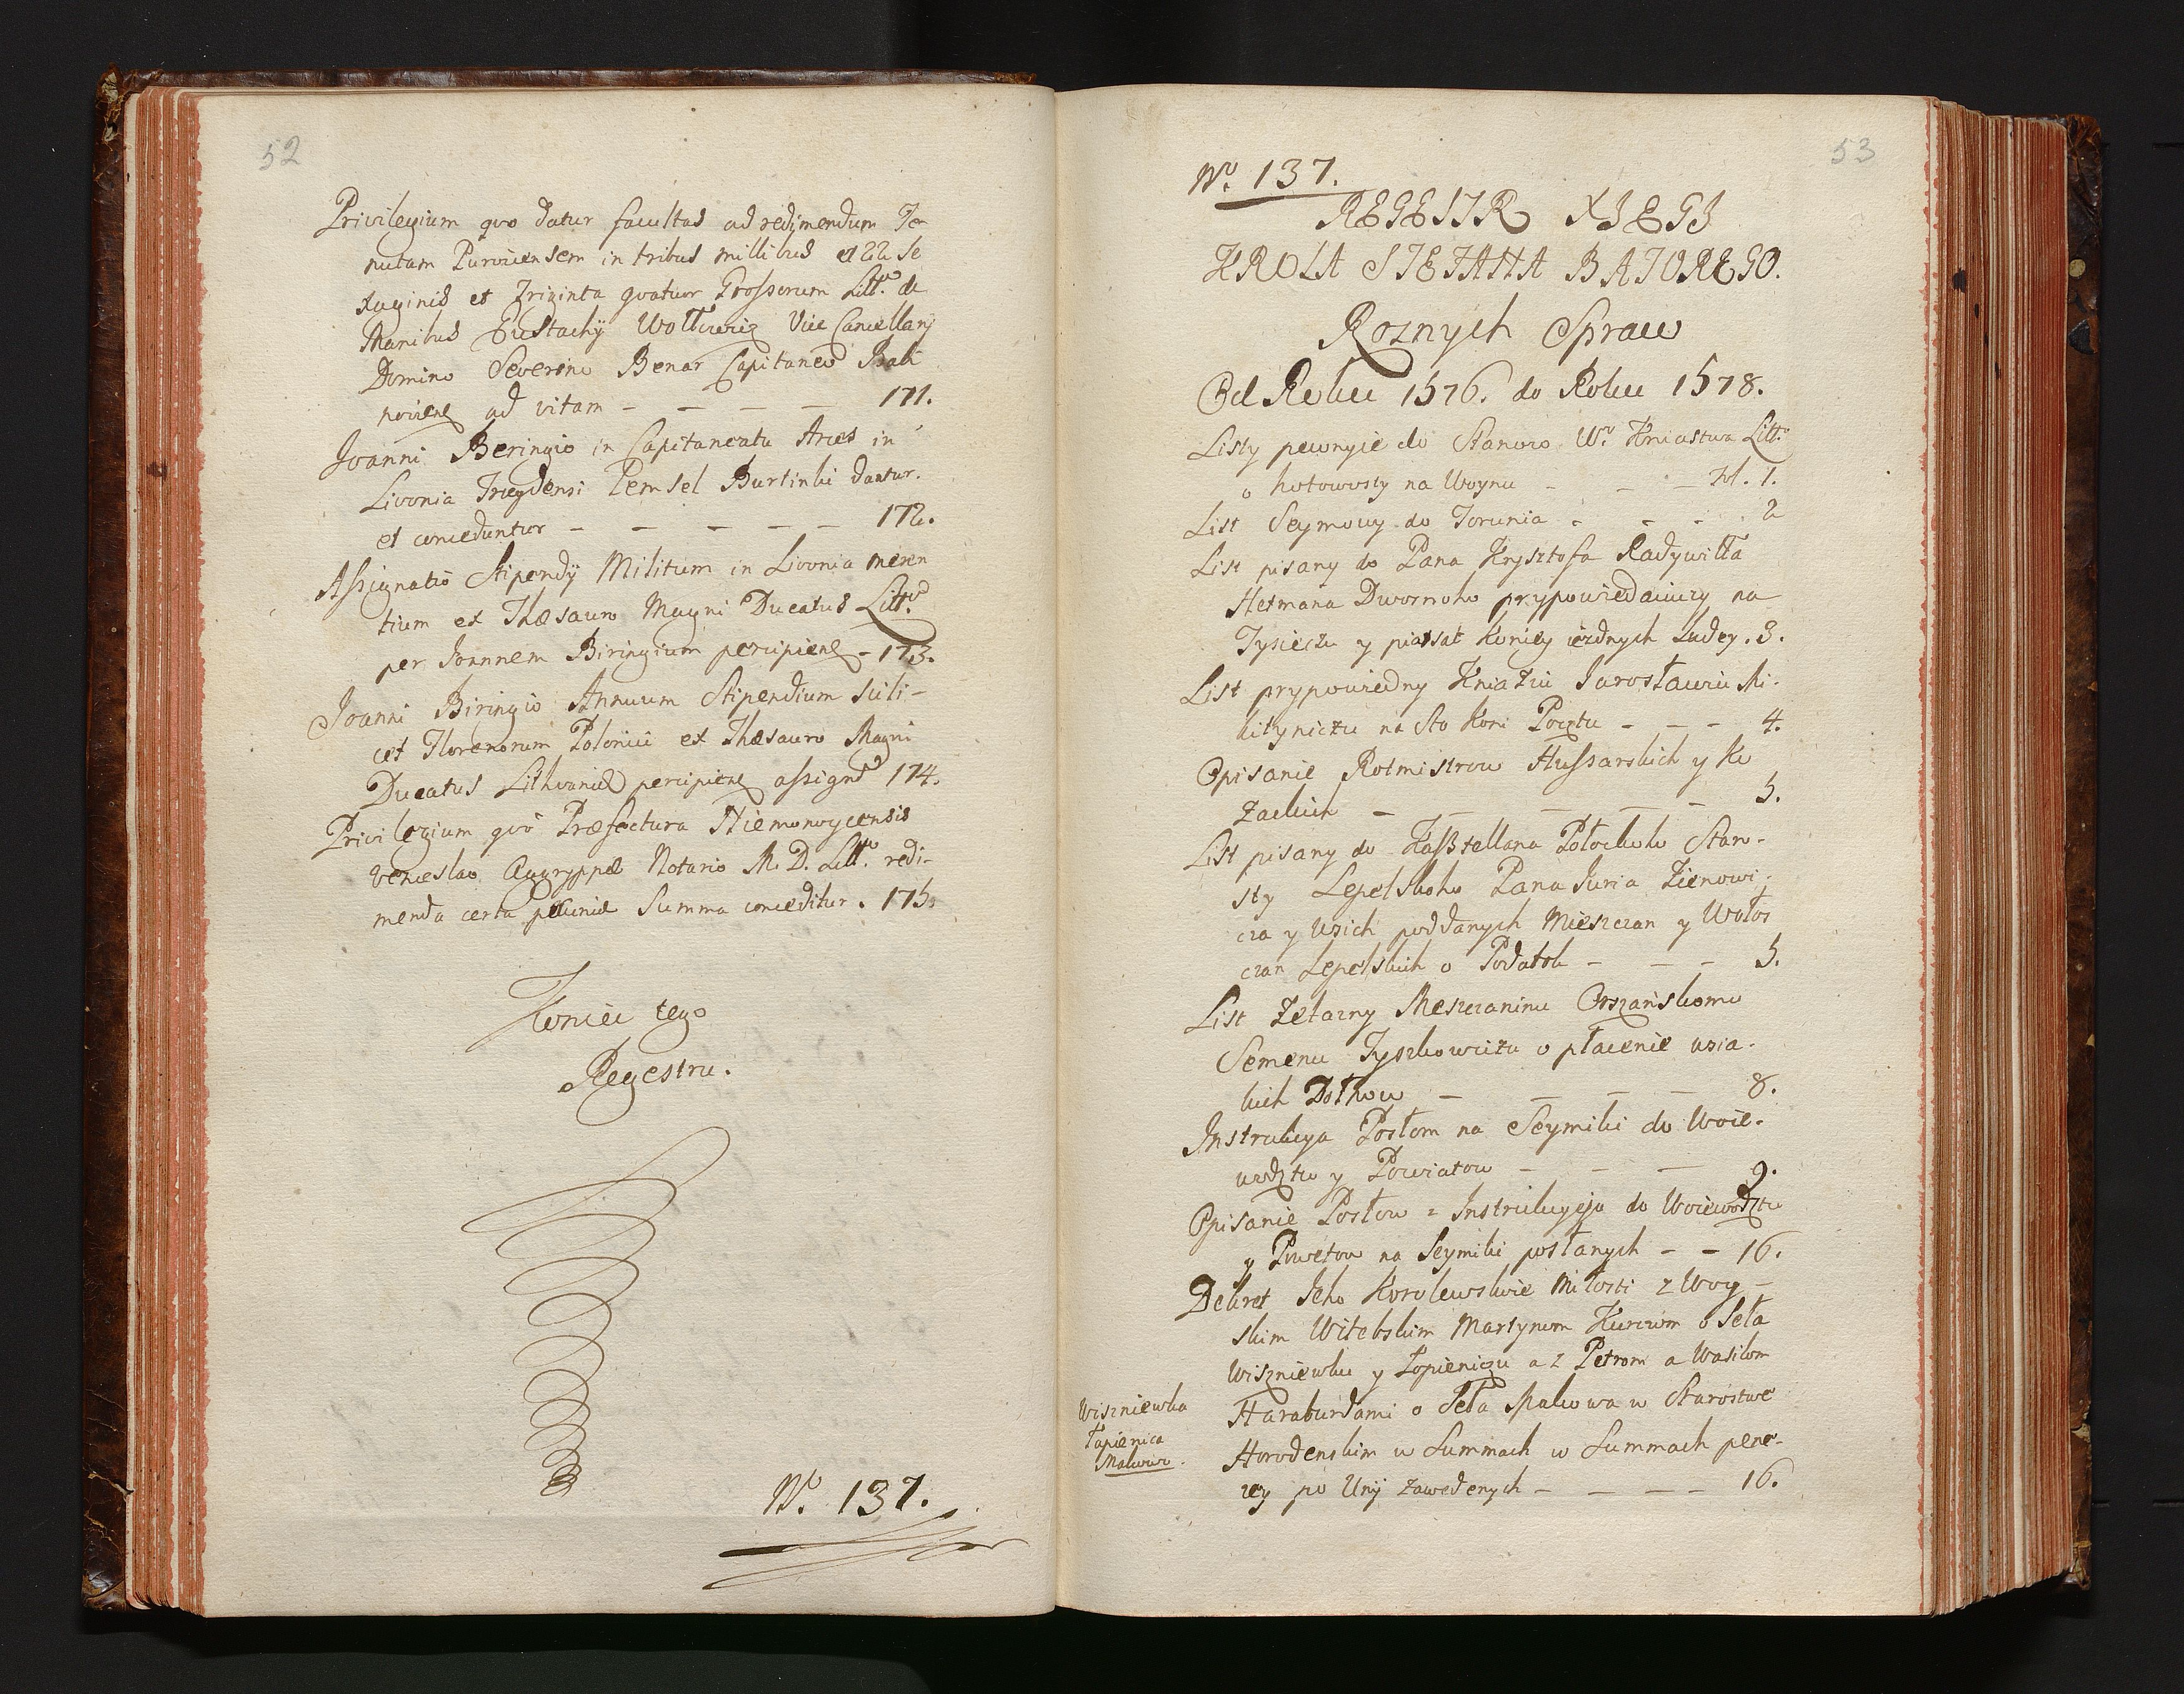 52
Privilegium quo datur facultas ad redimendum Te
nutam Purvicensem in tribus millibus et 222 Se
xaginis et Triginta quatuor Grossorum Litto. de
Manibus Eustachÿ Wollowicz Vice Cancellarÿ
Domino Severino Benar Capitaneo Rab
novien ad vitam - - - - 171.
Joanni Beringio in Capitaneatu Arces in
Livonia Treydensi Lemsel Burtinki dantur.
et conceduntur - - - - - 172.
Assignatio Stipendÿ Militum in Livonia meren
tium ex Thesauro Magni Ducatus Litto.
per Joannem Biringium percipien - 173.
Joanni Biringio Annuum Stipendium scili-
cet Florenorum Polonici ex Thesauro Magni
Ducatus Lithvaniæ percipien assignd 174.
Privilegium quo Præfectura Niemonoycensis
Venceslao Agryppæ Notario M. D. Litto. redi-
menda certa pecuniæ Summa conceditur. 175.
Koniec tego
Regestru.
No. 137.
53
No. 137.
REGESTR XIĘGI
KROLA STEFANA BATOREGO.
Roznych Spraw
Od Roku 1576. do Roku 1578.
Listy pewnyie do Stanow Wo. Kniastwa Litto.
o hotowosty na Woynu - - - fol. 1.
List Seymowy do Torunia - - - 2
List pisany do Pana Krysztofa Radywiłła
Hetmana Dwornoho prypowiedaiuczy na
Tysieczu y piatsat Koniey iezdnych Ludey. 3.
List prypowiedny Kniaziu Jarosławu Mi-
kitynicZu na Sto Koni Pocztu - - - 4.
Opisanie Rotmistrow Hussarskich y Ko
zackich - - - - - 5.
List pisany do Kasztellana Połockoho Staro-
sty Lepelskoho Pana Juria Zienowi-
cza y Wsich poddanych Mieszczan y Wołos
czan Lepelskich o Podatok - - - 5.
List Zelazny Meszczaninu Orszańskomu
Semenu Tyszkowiczu o płacenie wsia-
kich Dołhow - - - - 8.
Instrukcya Posłom na Seymiki do Woie-
wodztw y Powiatow - - - 9.
Opisanie Posłow z Instrukcyeju do Woiewodztw
y Powetow na Seymiki posłanych - - 16.
Dekret Jeho Korolewskie Miłosti z Woy-
skim Witebskim Martynom Kurczom o Seła
Wiszniewku y Łopieniczu a z Petrom a Wasilom
Haraburdami o Seła Makowa w Starostwe
Horodenskim w Summach w Summach pene-
zey po Unÿ zawedenych - - - - 16.
Wiszniewka
Łapienica
Makowo.